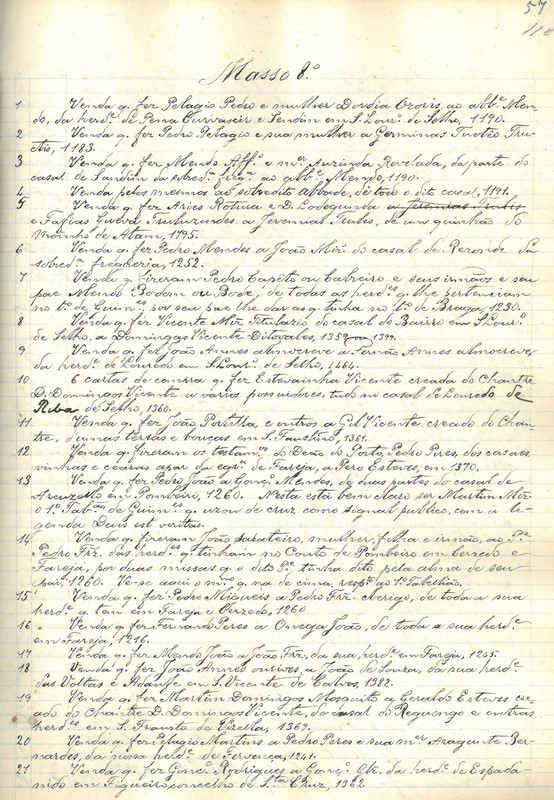 57
110
Masso 8.º
1 Venda q. fez Pelagio Pedro e mulher Dordia Ozoris, ao abb.e Men-
do, da herd.e de Penna Curvaceir e Sendim em S. Lour.º de Selho, 1190.
2 Venda q. fez Pedro Pelagio e sua mulher a Germinas Tructo Tru-
ctis, 1183.
3 Venda q. fez Mendo Aff.º e m.er Aurinda Revelada, da parte do
casal de Sandim da sobred.a freg.a ao abb.e Mendo, 1190.
4 Venda pelos mesmos ao sobredito Abbade, de todo o dito casal, 1191.
5 Venda q. fez Aries Rotura e D. Lodegunda a Jeremias Trutis
e Fafias Truturendes a Jeremias Trutes, de um quinhão do
moinho de Atam, 1195.
6 Venda q. fez Pedro Mendes a João Miz. do casal de Reronde da
sobred.a freguezia, 1252.
7 Venda q. fizeram Pedro Capêto ou Cabreiro e seus irmãos e seu
pae Mendo Bodom ou Bode, de todas as herd.es q. lhe pertenciam
no t.º de Guim.es, por seu pae lhe dar as q. tinha no t.º de Braga, 1230.
8 Venda q. fez Vicente Miz. Titulario do casal do Bairro em S. Lour.º
de Selho, a Domingas Vicente Ditovales, 1359 ou 1399.
9 Venda q. fez João Annes almocreve a Fernão Annes almocreve
da herd.e de Louredo em S. Lour.º de Selho, 1464.
10 6 cartas de compra q. fez Estevainha Vicente creada do Chantre
D. Domingos Vicente a varios possuidores, tudo no casal de Louredo de
Riba de Selho, 1360.
11 Venda q. fez João Portilha e outros a Gil Vicente creado do Chan-
tre, d'umas terras e boucas em S. Faustino, 1361.
12 Venda q. fizeram os testam.os do Deão do Porto Pedro Pires, dos casaes,
vinhas e cearas a par da egr.a de Fareja, a Pero Esteves, em 1370.
13 Venda q. fez Pedro João a Gonç.º Mendes, de duas partes do casal de
Arcuzello em Pombeiro, 1260. Nesta está bem claro ser Martim Miz.
o 1.º Tab.am de Guim.es q. uzou de cruz como signal publico, com a le-
genda Deus est veritas.
14 Venda q. fizeram João sapateiro, mulher, filha e irmão, ao P.e
Pedro Frz. das herd.es q. tinham no Couto de Pombeiro em Cerzedo e
Fareja, por duas missas q. o dito P.e tinha dito pela alma de seu
pai, 1260. Vê-se aqui o m.mo q. na de cima, resp.º ao 1.º Tabellião.
15 Venda q. fez Pedro Migueis a Pedro Frz. clerigo, de toda a sua
herd.e q. tem em Fareja e Cerzedo, 1260
16 Venda q. fez Fernando Peres a Onega João, de toda a sua herd.e
em Fareja, 1216.
17 Venda q. fez Mendo João a João Frz., da sua herd.e em Fareja, 1245.
18 Venda q. fez João Annes ourives, a João de Souza, da sua herd.e
das Voltas e Adaufe em S. Vicente de Calvos, 1382.
19 Venda q. fez Martim Domingos Mosquito a Geraldo Esteves cre-
ado do Chantre D. Domingos Vicente, do casal do Reguengo e outras
herd.es em S. Fausto de Vizella, 1369.
20 Venda q. fez Pelagio Martins a Pedro Peres e sua m.er Aragunte Ber-
nardes, da nossa herd.e de Fervença, 1241.
21 Venda q. fez Gonç.º Rodrigues a Gonç.º da herd.e de Espada-
nido em Figueiro, concelho de S.ta Cruz, 1322.